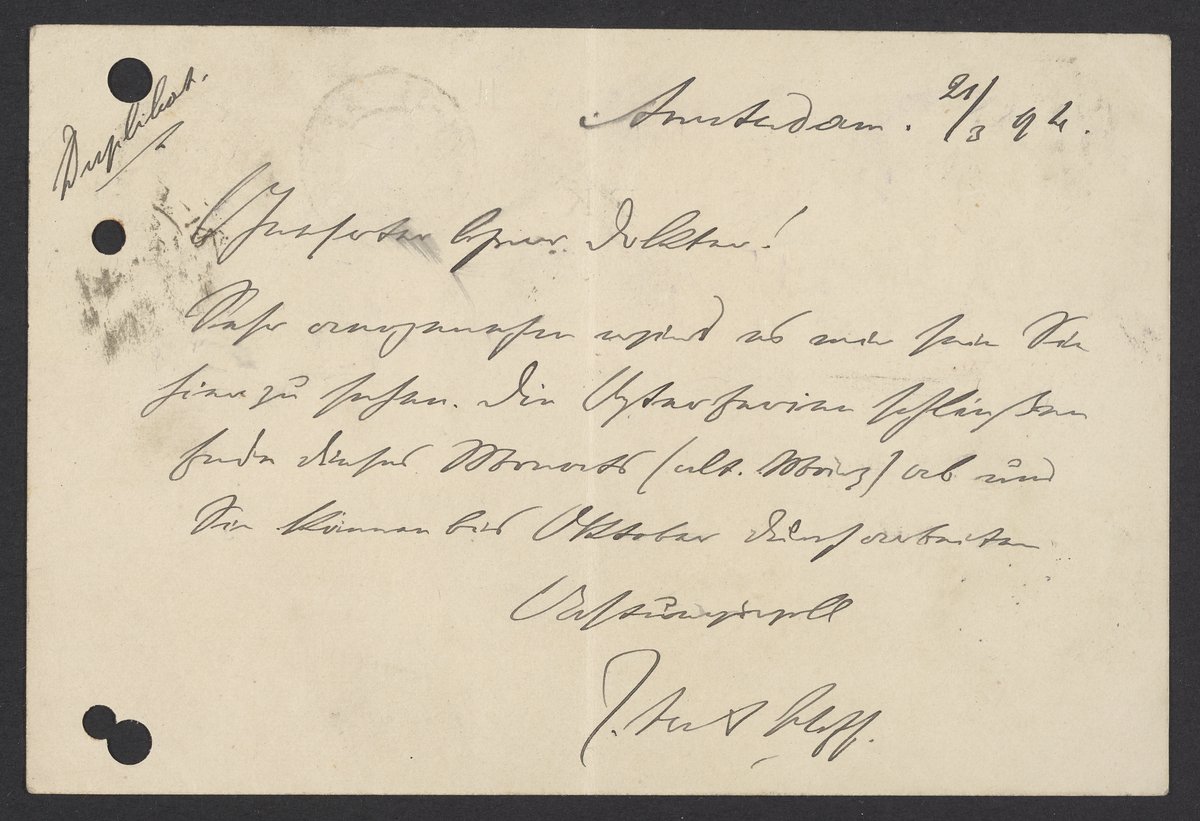 Duplikat.
Amsterdam. 21/3 94.
Geehrter Herr Doktor!
Sehr angenehm wird es mir sein Sie
hier zu sehen. Die Osterferien schließen
Ende dieses Monats (alt. März) ab und
Sie können bis Oktober durcharbeiten
Achtungsvoll
J. van't Hoff.